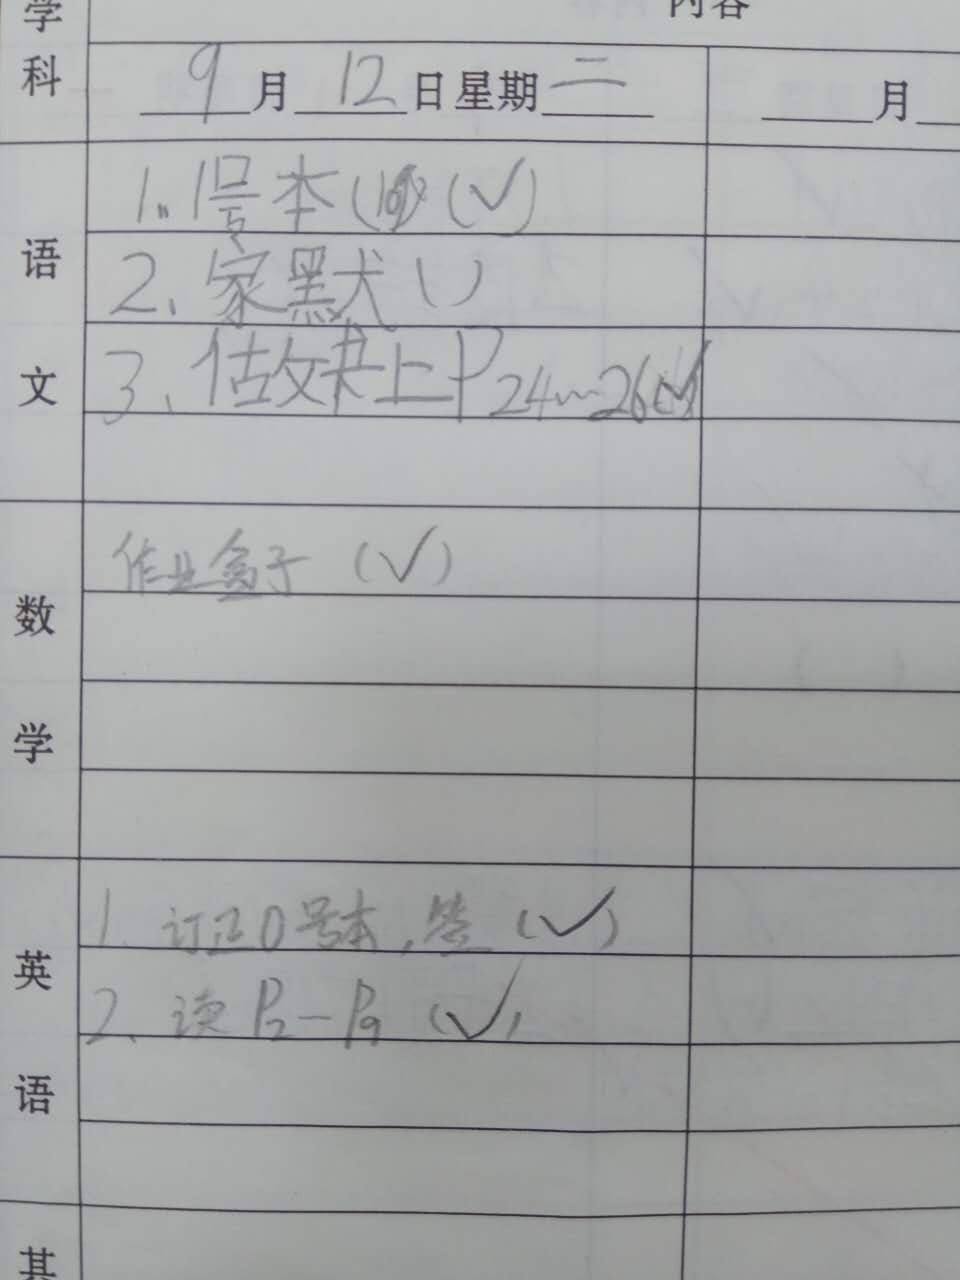 学
科
内容
9月12日星期二
月
语
文
1.1号本(√)
2、家默()
3、上P24~26
数
学
作业盒子(√)
英
语
1.订正0号本,签(√)
2、读P2-P9(√)
其